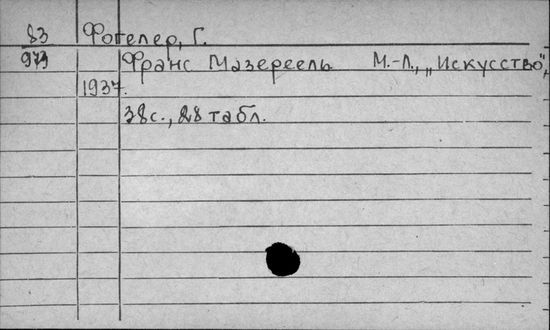 83 Фогелер, Г.
973 Франс Мазереель М.-Л., „Искусство",
1937.
38с., 28 табл.